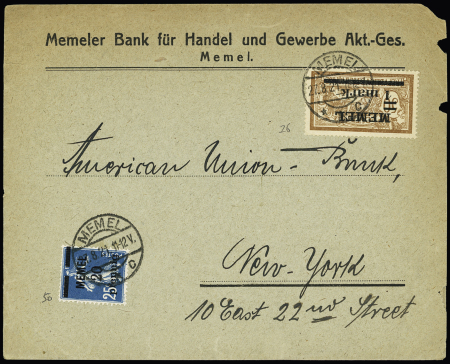 Memeler Bank für Handel und Gewerbe Akt.-Ges.
Memel.
MEMEL
C
MEMEL
1 mark
26
American Union-Bank,
MEMEL
11-12V.
C
MEMEL
20
25
50
New-York
10 East 22nd Street